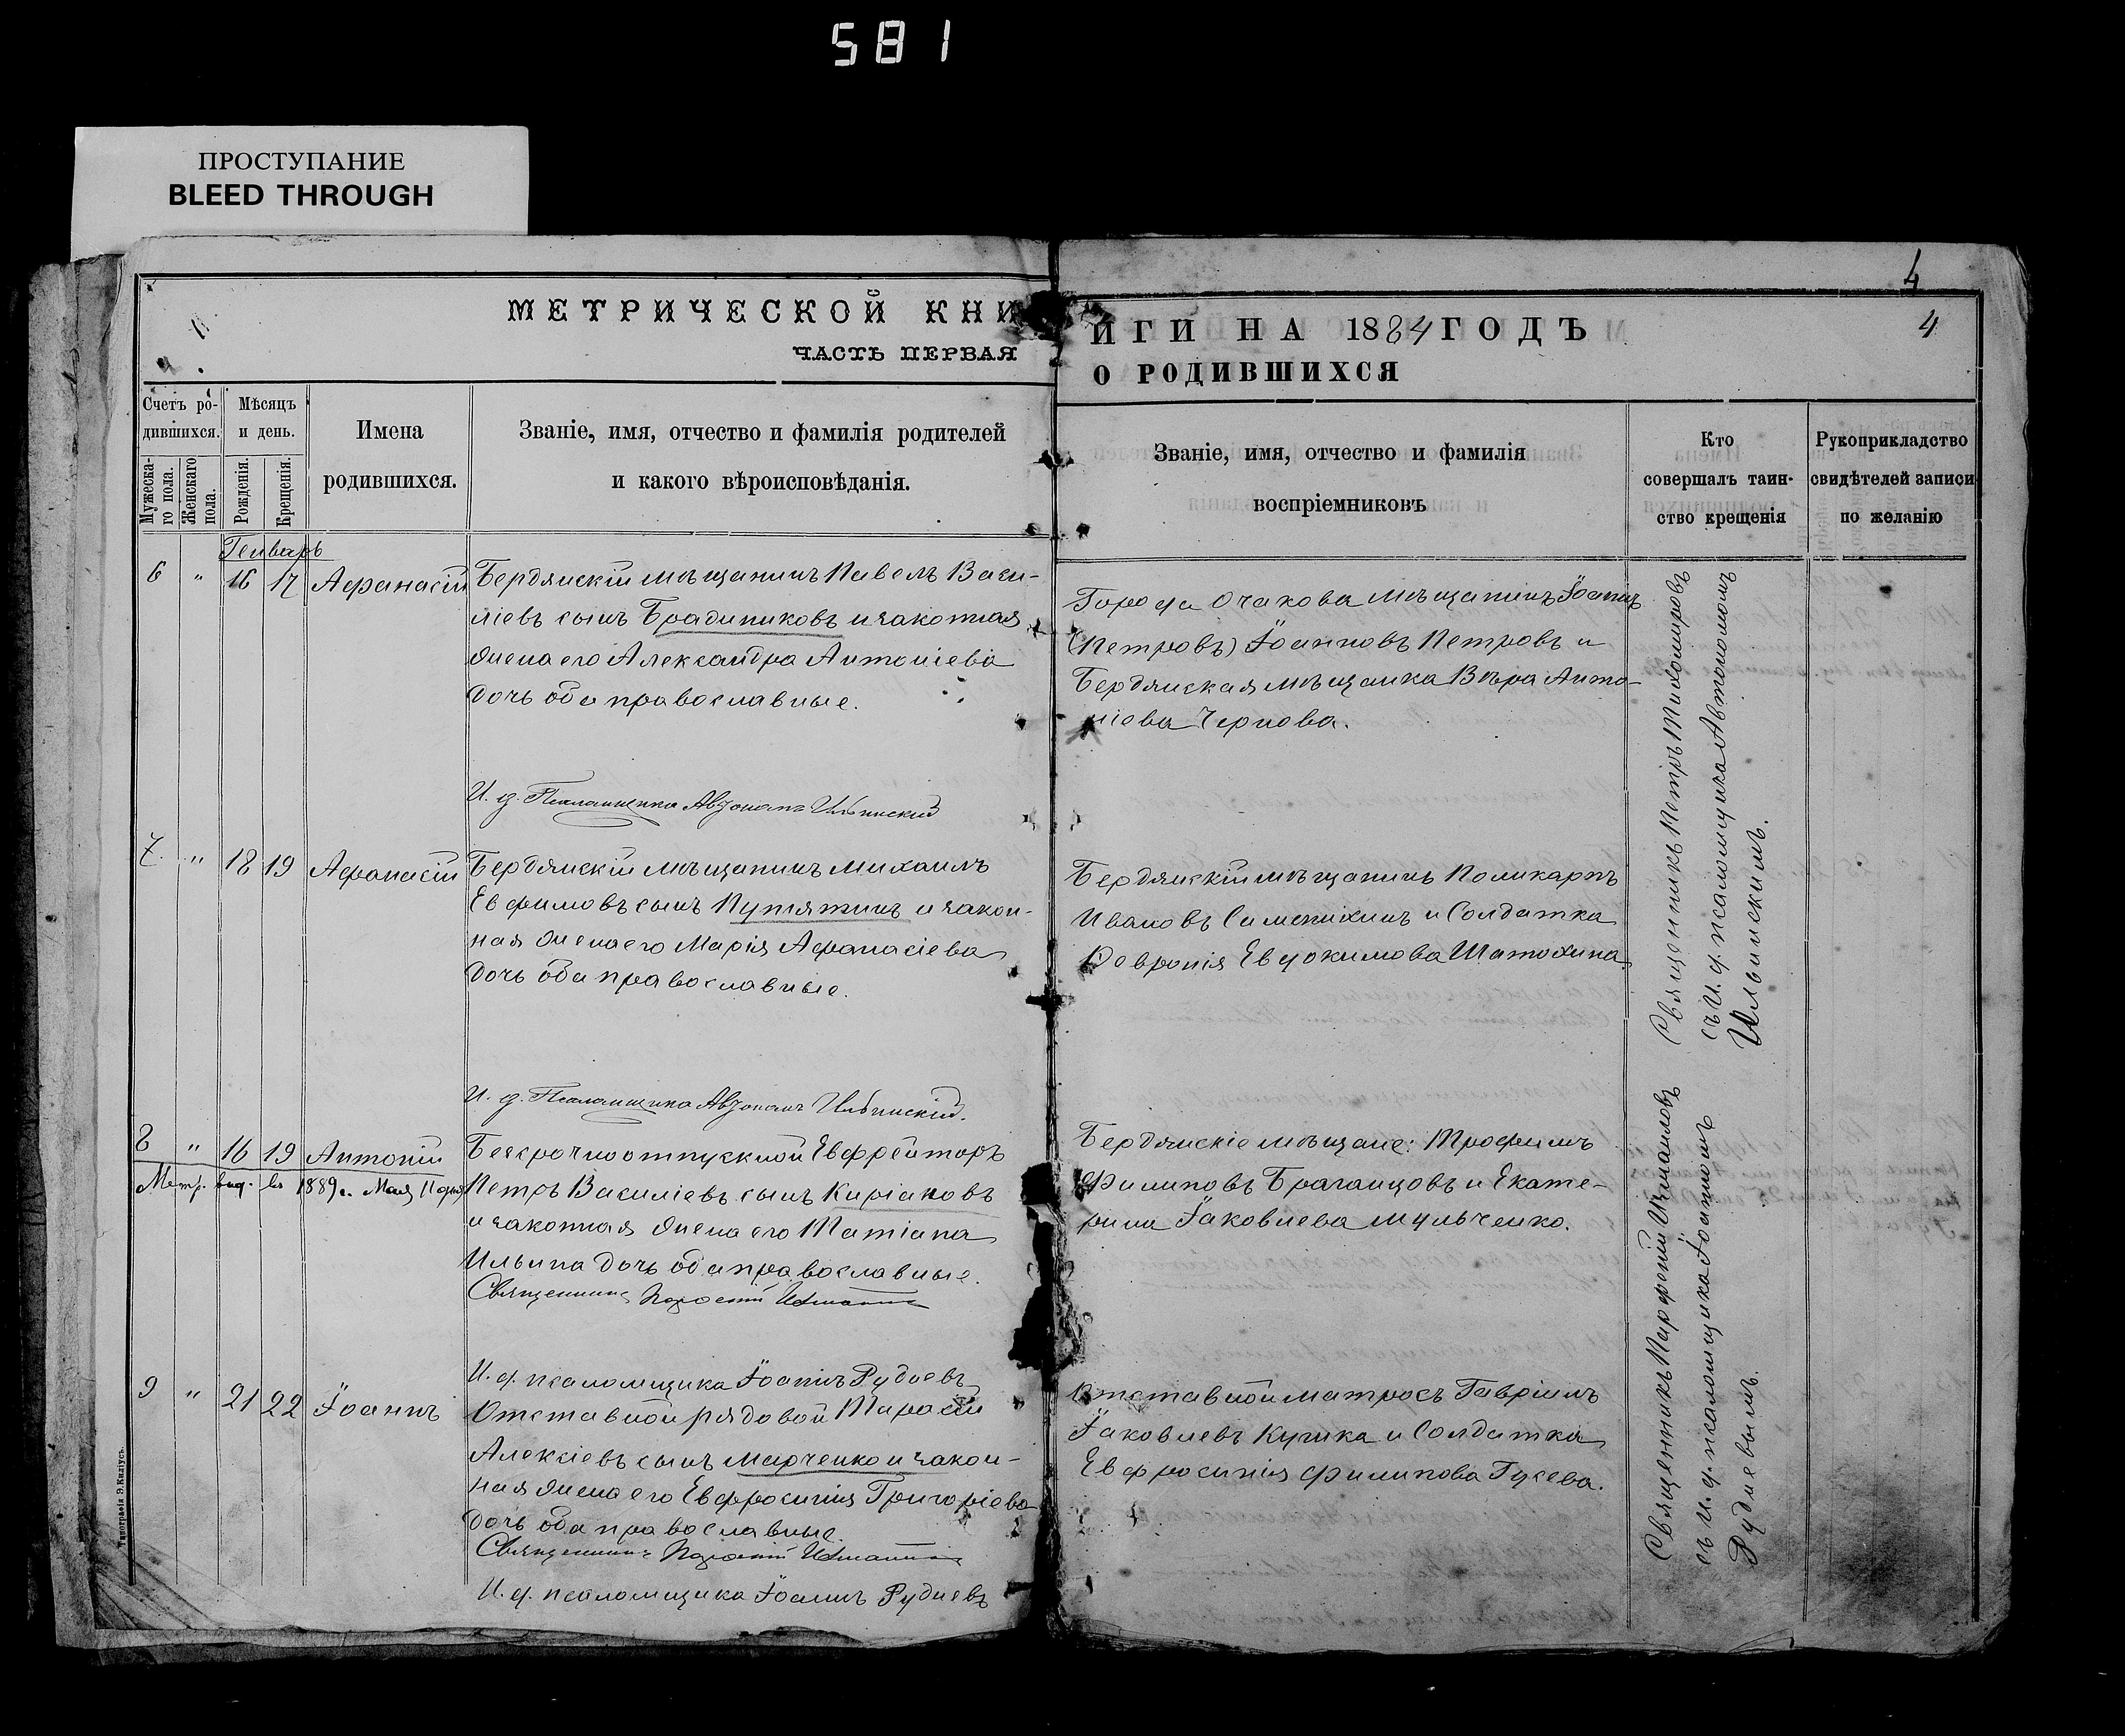 581
ПРОСТУПАНИЕ
BLEED THROUGH
МЕТРИЧЕСКОЙ КНИ
ЧАСТЬ ПЕРВАЯ
Счетъ ро-
дившихся.
Мужеска-
го пола.
Женскаго
пола.
Мѣсяцъ
и день.
Рожденія.
Крещенія.
Имена
родившихся.
Званіе, имя, отчество и фамилія родителей
и какого вѣроисповѣданія.
Генварь
6 " 16 17 Афанасій
Бердянскій мѣщанинъ Павелъ Васи-
ліевъ сынъ Брадниковъ и законная
жена его Александра Антоніева
дочь оба православные.
И. д. Псаломщика Автономъ Ильинский
7. " 18 19 Афанасій
Бердянскій мѣщанинъ Михаилъ
Евфимовъ сынъ Путятинъ и закон-
ная жена его Марія Афанасіева
дочь оба православные.
И. д. Псаломщика Автономъ Ильинскій.
8 " 16 19 Антоній
Метр. выд. въ 1889 г. Мая 11 дня
Безсрочноотпускной Ефрейторъ
Петръ Василіевъ сынъ Киріаковъ
и законная жена его Татіана
Ильина дочь оба православные.
Священникъ Парфеній
И. д. псаломщика Іоаннъ Рудневъ
9 " 21 22 Іоаннъ
Отставной рядовой Тарасій
Алексіевъ сынъ Марченко и закон-
ная жена его Евфросинія Григоріева
дочь оба православные.
Священникъ Парфеній
И. д. псаломщика Іоаннъ Рудневъ
Типографія Э. Киліусъ.
4
ИГИ НА 1884 ГОДЪ
4
О РОДИВШИХСЯ
Званіе, имя, отчество и фамилія
воспріемниковъ
Кто
совершалъ таин-
ство крещенія
Рукоприкладство
свидѣтелей записи
по желанію
Города Очакова мѣщанинъ Іоаннъ
(Петровъ) Іоанновъ Петровъ и
Бердянская мѣщанка Вѣра Анто-
ніова Чернова.
Бердянскій мѣщанинъ Поликарпъ
Ивановъ Саменихинъ и Солдатка
Февронія Евдокимова Шатохина.
Священникъ Петръ Тихомировъ
съ И. д. псаломщика Автономомъ
Ильинскимъ.
Бердянскіе мѣщане: Трофимъ
Филиповъ Браганцовъ и Екате-
рина Іаковлева Мульченко.
Отставной матросъ Гавріилъ
Іаковлевъ Кучика и Солдатка
Евфросинія Филипова Гусева.
Священникъ Парфеній Измаиловъ
съ И. д. псаломщика Іоанномъ
Рудневымъ.